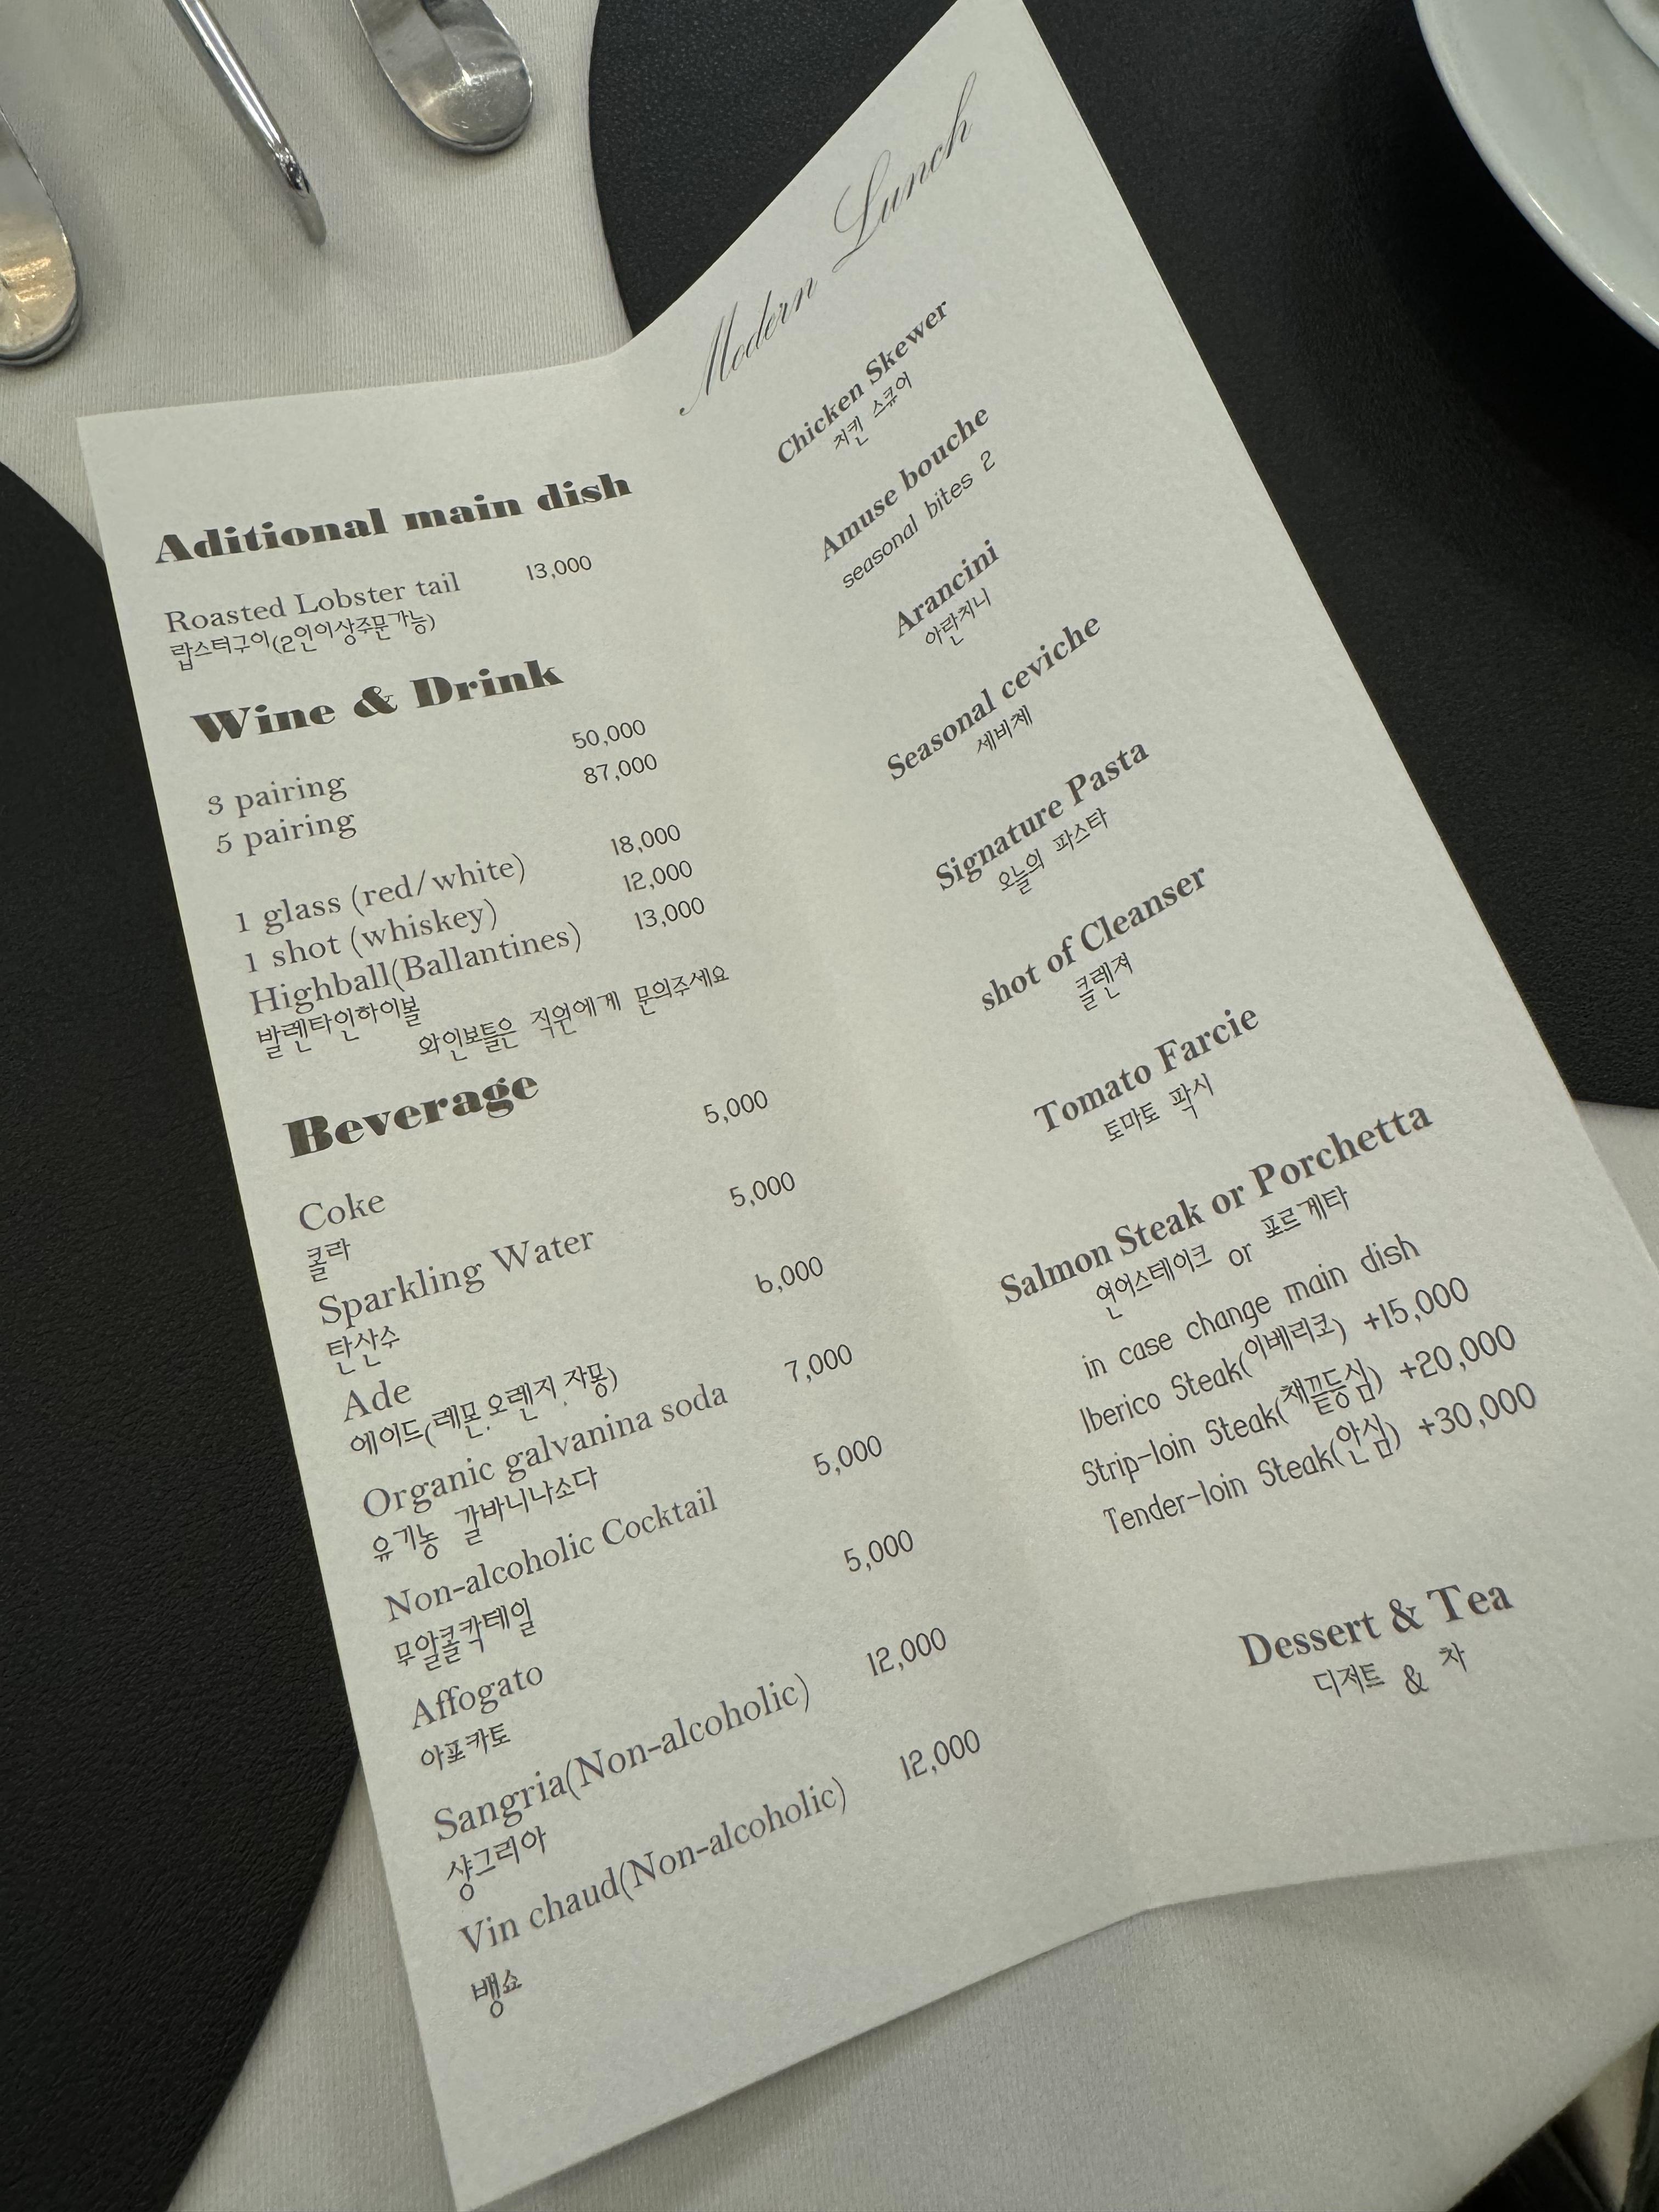 Aditional main dish
Roasted Lobster tail 13,000
랍스터구이(2인이상주문가능)
Wine & Drink
3 pairing 50,000
5 pairing 87,000
1 glass (red/white) 18,000
1 shot (whiskey) 12,000
Highball(Ballantines) 13,000
발렌타인하이볼
와인보틀은 직원에게 문의주세요
Beverage
Coke 5,000
콜라
Sparkling Water 5,000
탄산수
Ade 6,000
에이드(레몬,오렌지,자몽)
Organic galvanina soda 7,000
유기농 갈바니나소다
Non-alcoholic Cocktail 5,000
무알콜칵테일
Affogato 5,000
아포카토
Sangria(Non-alcoholic) 12,000
샹그리아
Vin chaud(Non-alcoholic) 12,000
뱅쇼
Modern Lunch
Chicken Skewer
치킨 스큐어
Amuse bouche
seasonal bites 2
Arancini
아란치니
Seasonal ceviche
세비체
Signature Pasta
오늘의 파스타
shot of Cleanser
클렌져
Tomato Farcie
토마토 팍시
Salmon Steak or Porchetta
연어스테이크 or 포르게타
in case change main dish
Iberico Steak(이베리코) +15,000
Strip-loin Steak(채끝등심) +20,000
Tender-loin Steak(안심) +30,000
Dessert & Tea
디저트 & 차